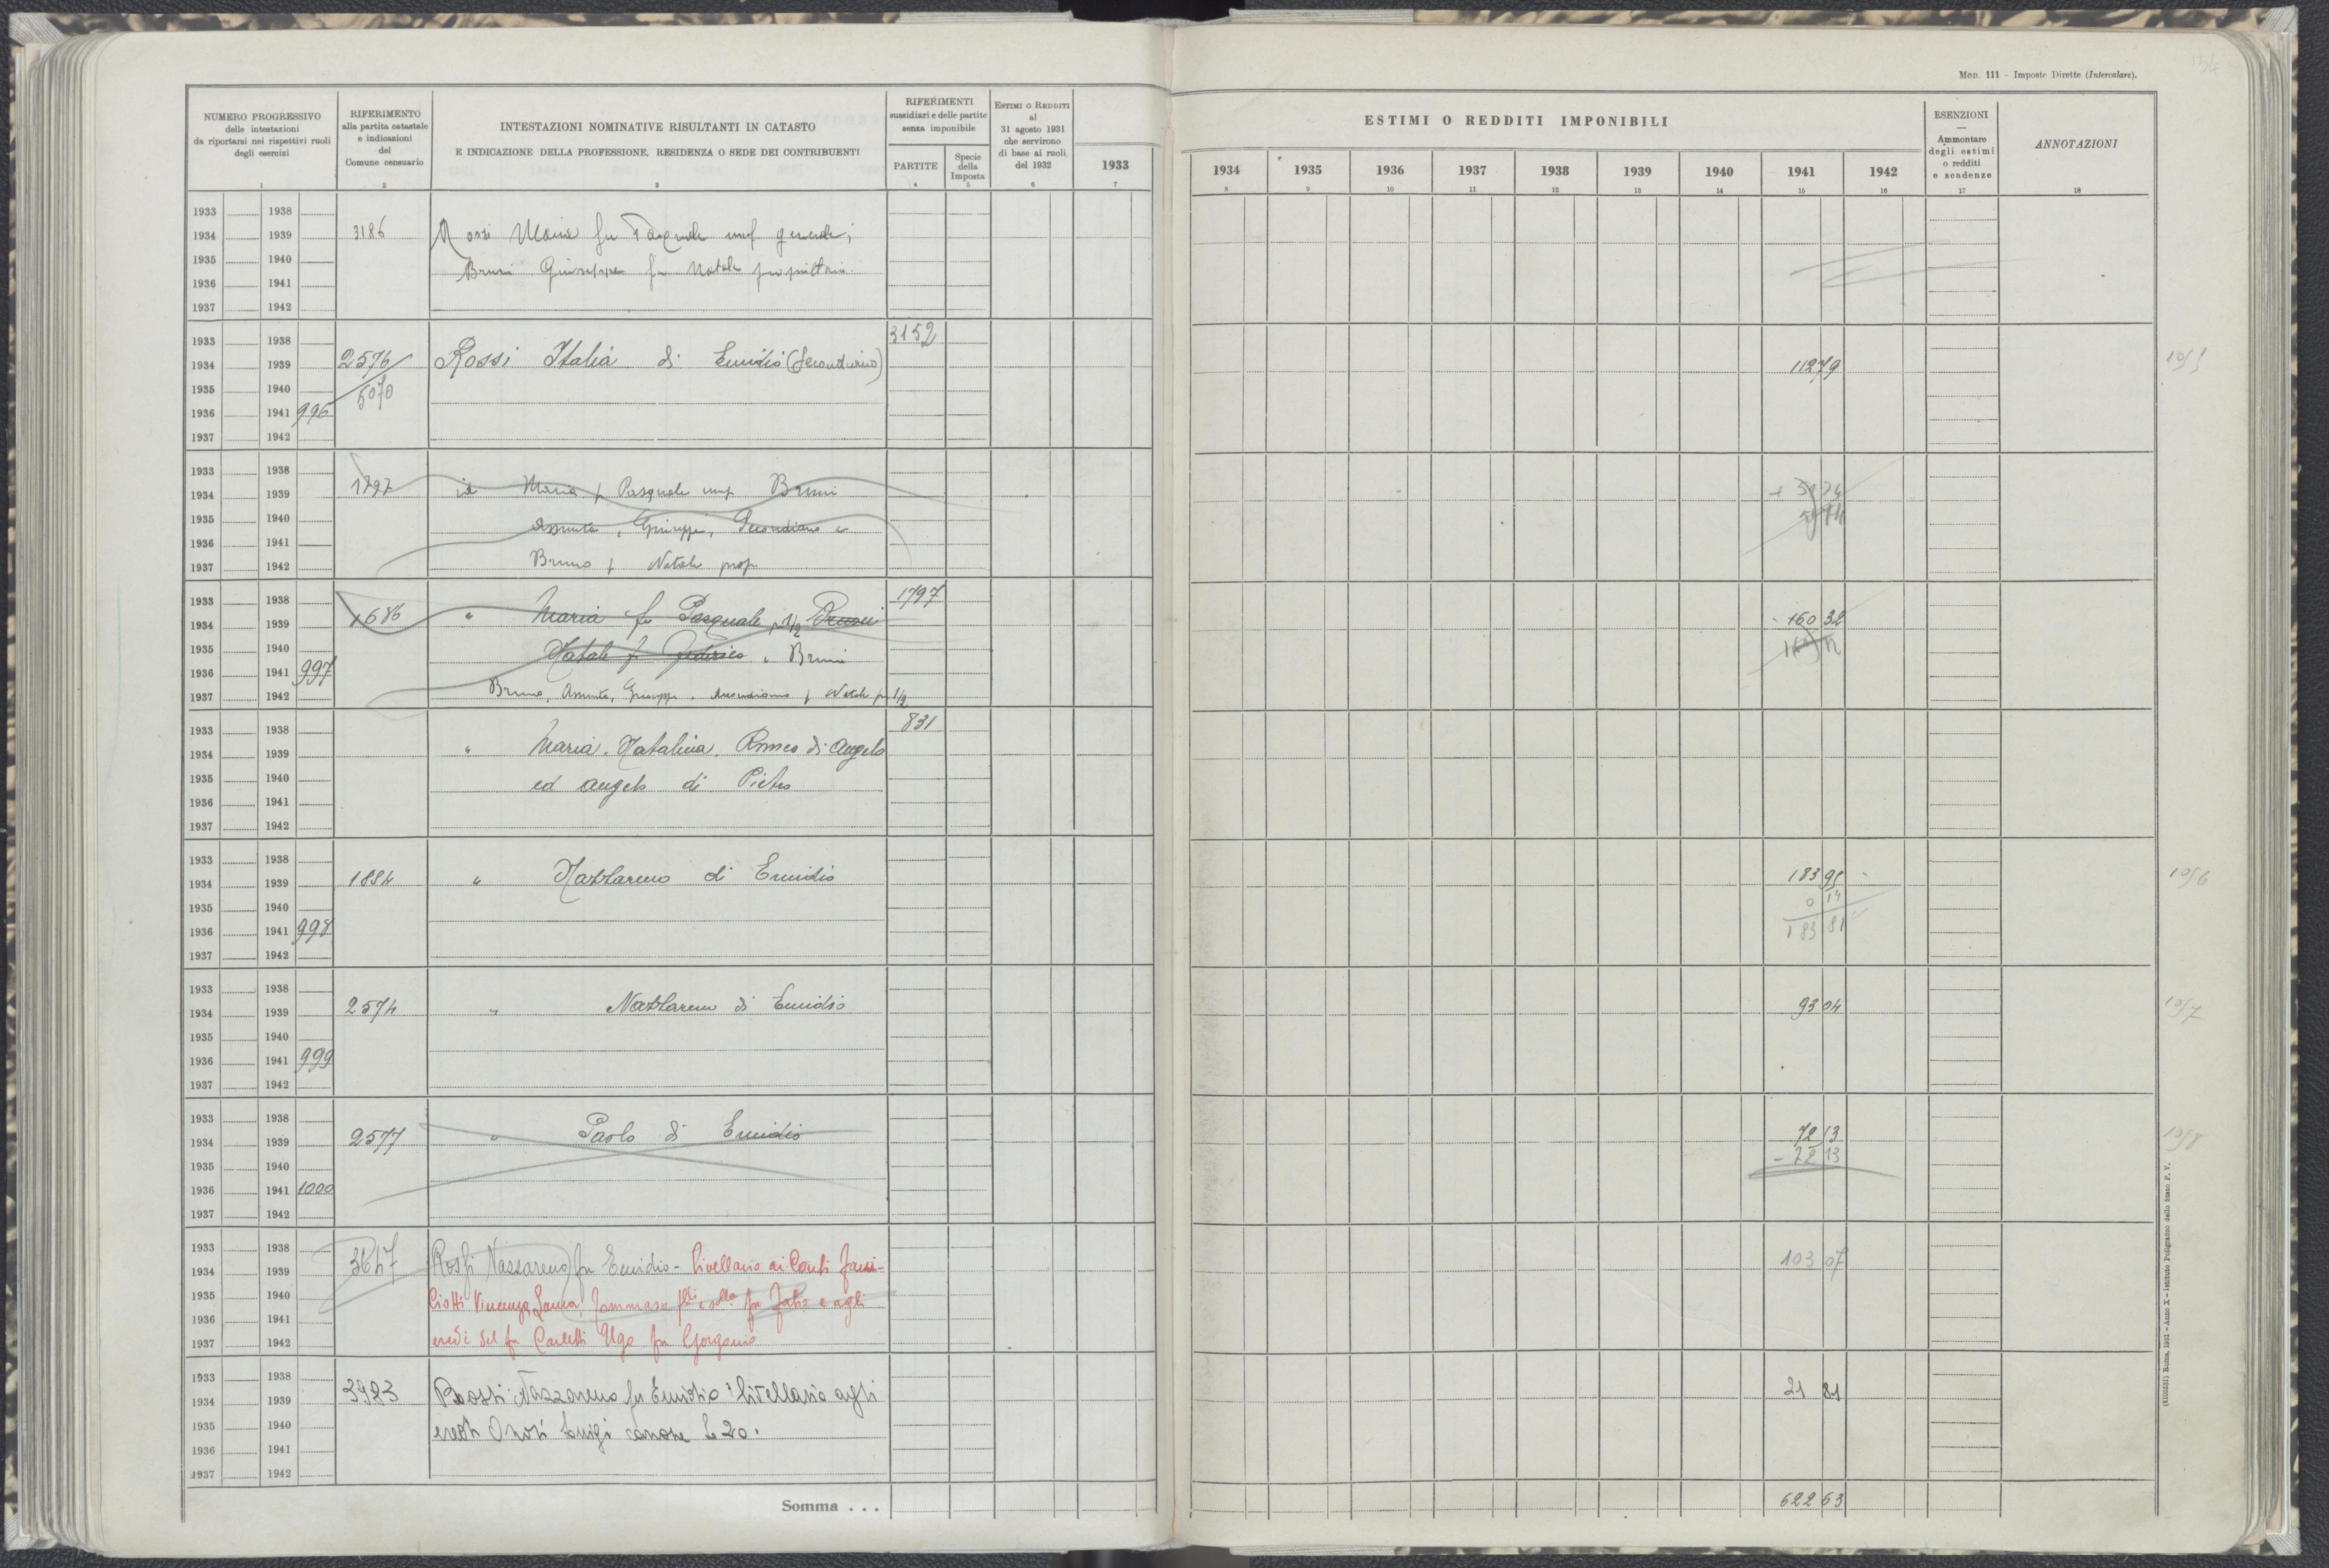 Mod. 111 - Imposte Dirette (Intercalare).
NUMERO PROGRESSIVO
delle intestazioni
da riportarsi nei rispettivi ruoli
degli esercizi
RIFERIMENTO
alla partita catastale
e indicazioni
del
Comune censuario
INTESTAZIONI NOMINATIVE RISULTANTI IN CATASTO
E INDICAZIONE DELLA PROFESSIONE, RESIDENZA O SEDE DEI CONTRIBUENTI
RIFERIMENTI
sussidiari e delle partite
senza imponibile
PARTITE
Specie
della
Imposta
Estimi o Redditi
al
31 agosto 1931
che servirono
di base ai ruoli
del 1932
ESTIMI O REDDITI IMPONIBILI
1933 1934 1935 1936 1937 1938 1939 1940 1941 1942
ESENZIONI
—
Ammontare
degli estimi
o redditi
e scadenze
ANNOTAZIONI
1 2 3 4 5 6 7 8 9 10 11 12 13 14 15 16 17 18
1933 1938
1934 1939 3186 Rossi Maria fu Pasquale
1935 1940 Bruni Giuseppe fu Natale
1936 1941
1937 1942
1933 1938 3152
1934 1939 2576 Rossi Italia di Emidio (Secondurio) 112 79 1055
1935 1940 5070
1936 1941 996
1937 1942
1933 1938
1934 1939 1797 id Maria f Pasquale usuf Bruni
1935 1940 Assunta, Giuseppe, Secondiano e
1936 1941
1937 1942 Bruno f Natale prop
1933 1938 1797
1934 1939 1686 " Maria fu Pasquale p 1/2 Bruni 160 32
1935 1940 Natale f Federico " Bruni
1936 1941 997
1937 1942 Bruno, Assunta, Giuseppe, Secondiano f Natale p 1/2
1933 1938 831
1934 1939 " Maria, Natalina, Romeo di Angelo
1935 1940 ed Angelo di Pietro
1936 1941
1937 1942
1933 1938
1934 1939 1884 " Nazzareno di Emidio 183 95 1056
1935 1940 0 14
1936 1941 998 183 81
1937 1942
1933 1938
1934 1939 2574 " Nazzareno di Emidio 93 04 1057
1935 1940
1936 1941 999
1937 1942
1933 1938
1934 1939 2577 " Paolo di Emidio 72 13 1058
1935 1940 - 72 13
1936 1941 1000
1937 1942
1933 1938
1934 1939 3647 Rossi Nazzareno fu Emidio - livellario ai Conti 103 07
1935 1940 Vincenzo, Laura, Tommaso fu e agli
1936 1941
1937 1942 eredi del fu Carletti Ugo fu Gorgonio
1933 1938
1934 1939 3923 Rossi Nazzareno fu Emidio livellario agli 21 81
1935 1940 eredi Onori Luigi canone L 20.
1936 1941
1937 1942
Somma . . . 622 63